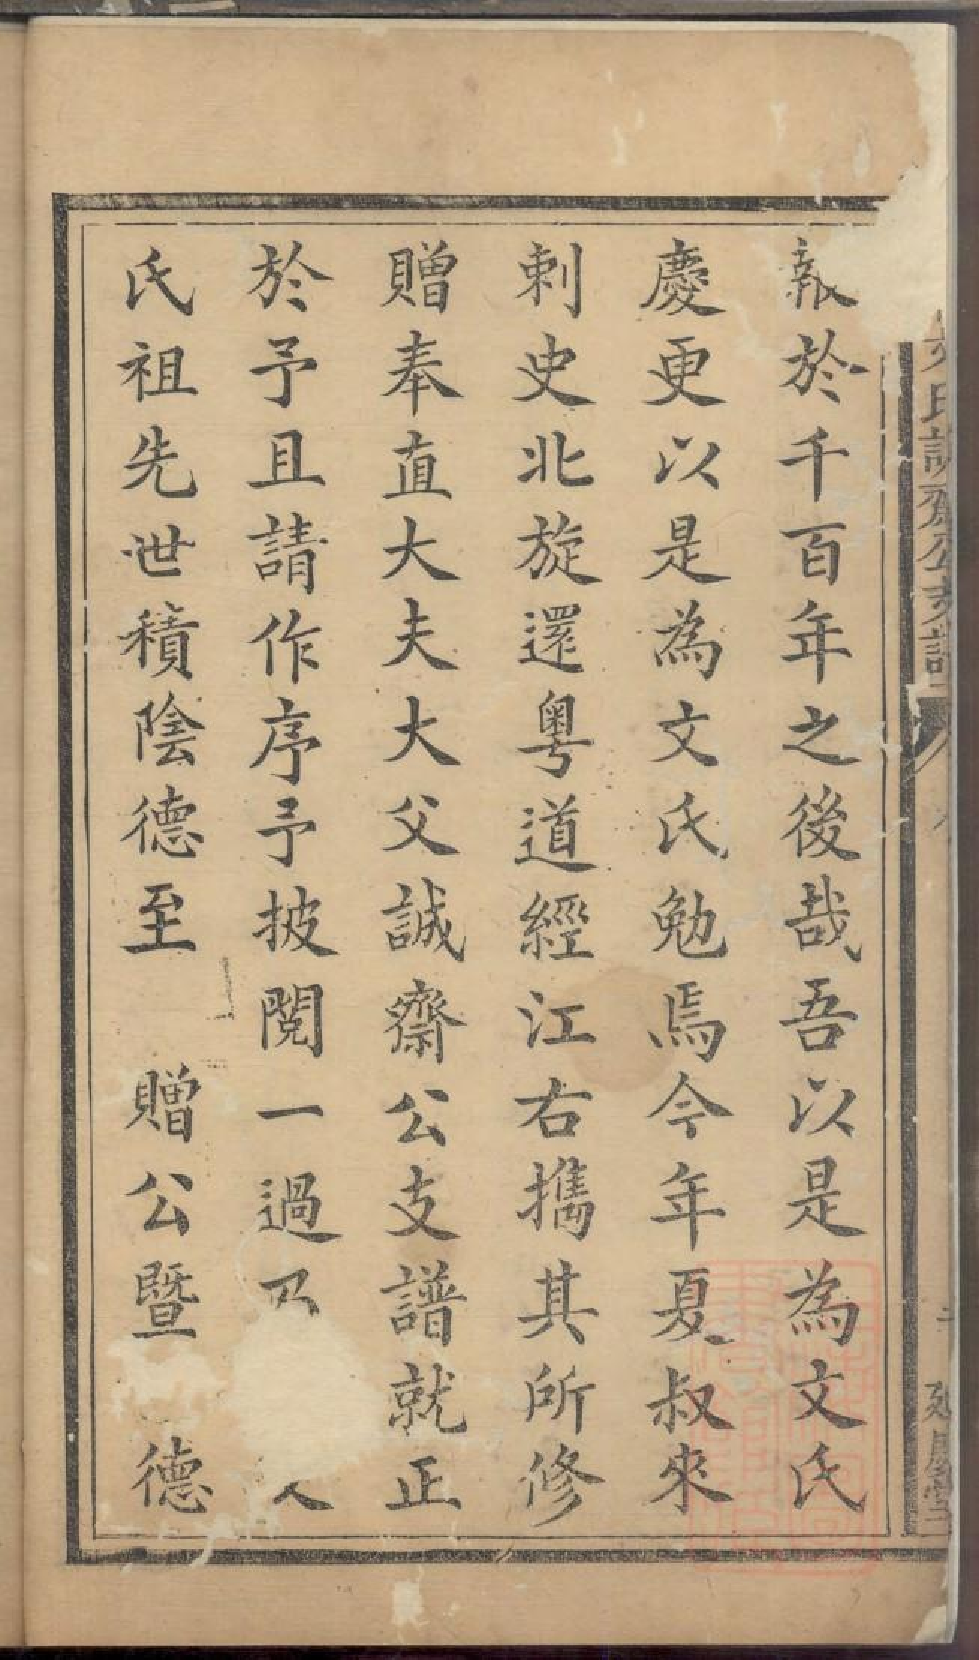 報於千百年之後哉吾以是為文氏
慶更以是為文氏勉焉今年夏叔來
刺史北旋還粵道經江右攜其所修
贈奉直大夫大父誠齋公支譜就正
於予且請作序予披閱一過乃
氏祖先世積陰德至 贈公暨 德
文氏誠齋公支譜
延慶堂